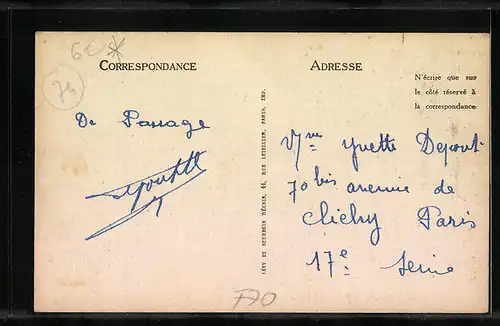 6€ *
CORRESPONDANCE
ADRESSE
N'écrire que sur
le côté réservé à
la correspondance
74
De Passage
LÉVY ET NEURDEIN RÉUNIS, 44, RUE LETELLIER, PARIS, IMP.
Yvette Depont
70 bis avenue de
Clichy Paris
17e Seine